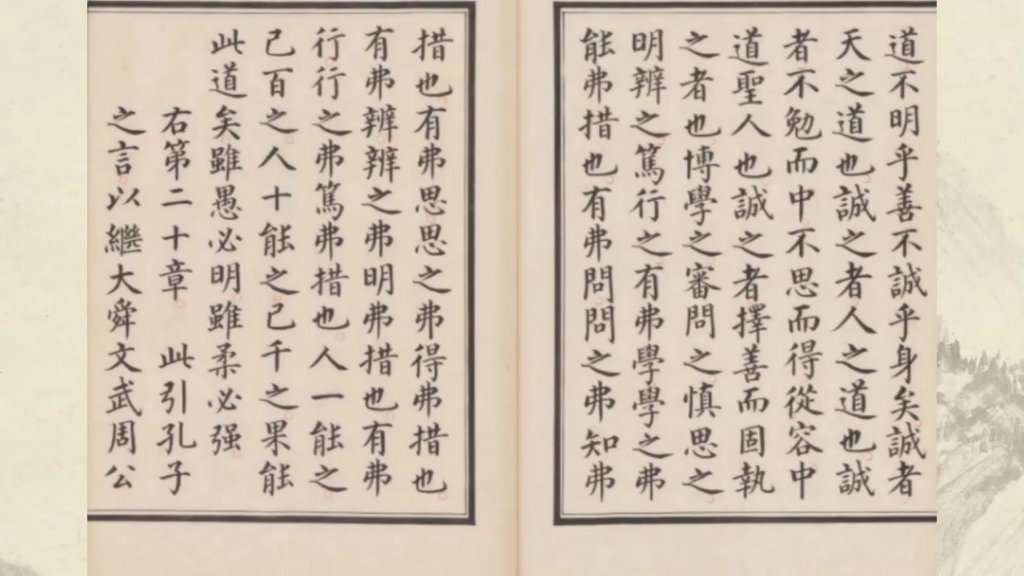 道不明乎善不誠乎身矣誠者
天之道也誠之者人之道也誠
者不勉而中不思而得從容中
道聖人也誠之者擇善而固執
之者也博學之審問之慎思之
明辨之篤行之有弗學學之弗
能弗措也有弗問問之弗知弗
措也有弗思思之弗得弗措也
有弗辨辨之弗明弗措也有弗
行行之弗篤弗措也人一能之
己百之人十能之己千之果能
此道矣雖愚必明雖柔必强
右第二十章 此引孔子
之言以繼大舜文武周公